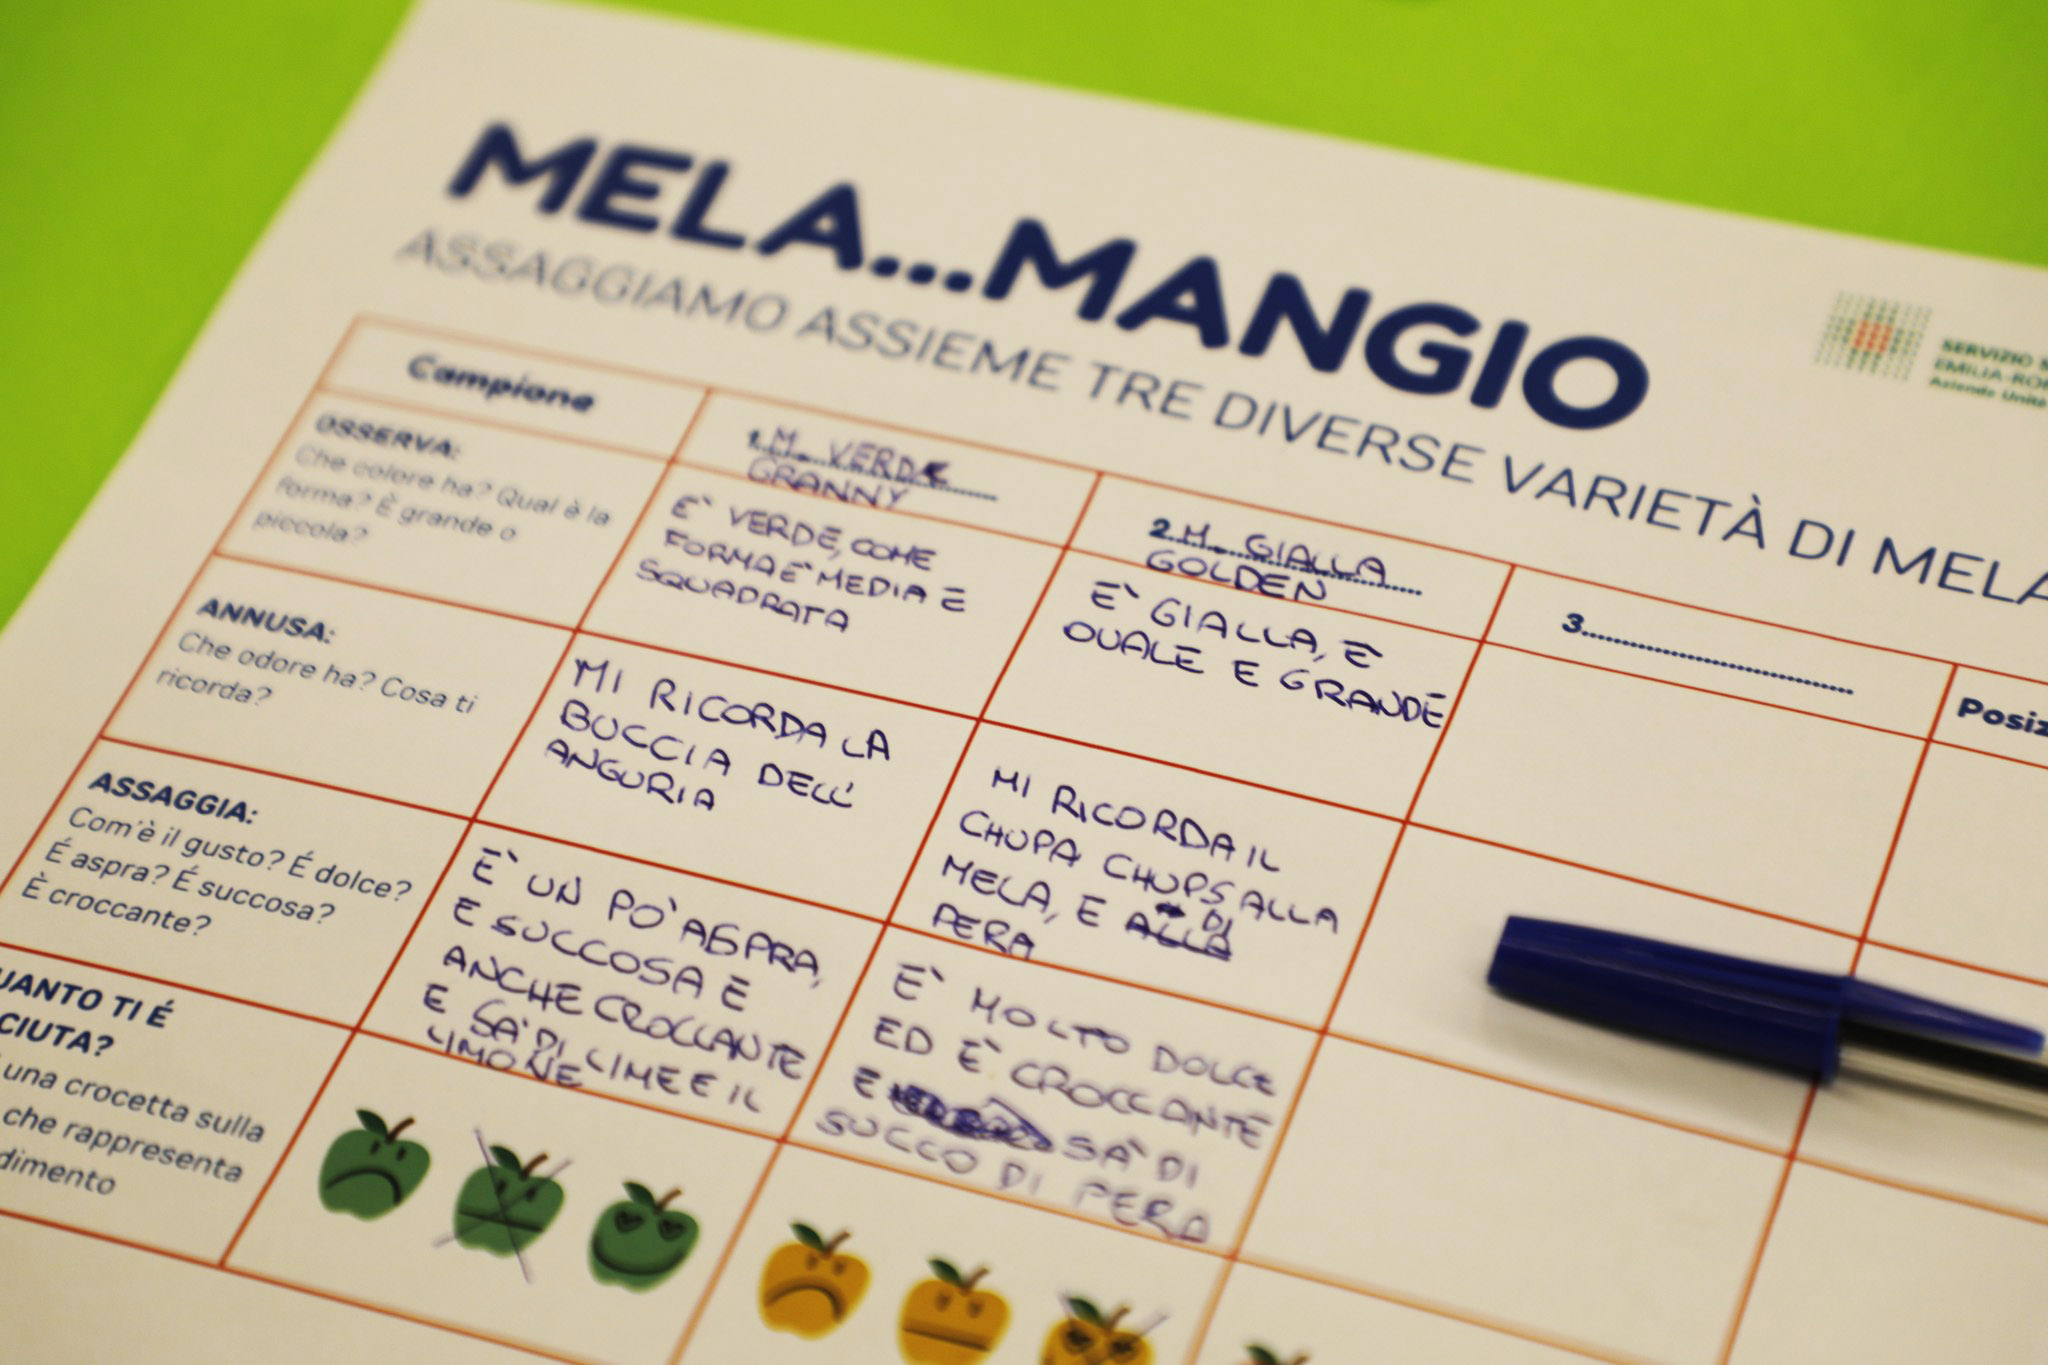 MELA...MANGIO
ASSAGGIAMO ASSIEME TRE DIVERSE VARIETÀ DI MELA
SERVIZIO
EMILIA-RO
Azienda Unità
Campione
1.M. VERDE
GRANNY
2.M. GIALLA
GOLDEN
3.
Posiz
OSSERVA:
Che colore ha? Qual è la
forma? È grande o
piccola?
E' VERDE, COME
FORMA E' MEDIA E
SQUADRATA
E' GIALLA, E'
OVALE E GRANDE
ANNUSA:
Che odore ha? Cosa ti
ricorda?
MI RICORDA LA
BUCCIA DELL'
ANGURIA
MI RICORDA IL
CHUPA CHUPS ALLA
MELA, E ALLA DI
PERA
ASSAGGIA:
Com'è il gusto? É dolce?
É aspra? É succosa?
È croccante?
E' UN PO' ASPRA,
E SUCCOSA E
ANCHE CROCCANTE
E SA' DI LIME E IL
LIMONE
E' MOLTO DOLCE
ED E' CROCCANTE
E SA' DI
SUCCO DI PERA
UANTO TI É
CIUTA?
una crocetta sulla
che rappresenta
dimento